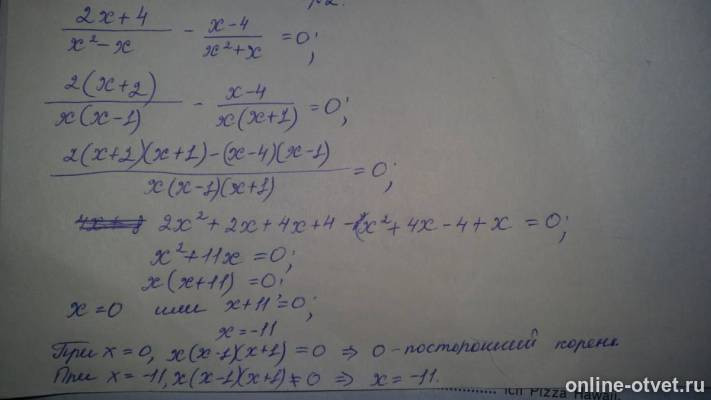 (2x+4)/(x²-x) - (x-4)/(x²+x) = 0;
2(x+2)/(x(x-1)) - (x-4)/(x(x+1)) = 0;
(2(x+2)(x+1)-(x-4)(x-1))/(x(x-1)(x+1)) = 0;
2x²+2x+4x+4-x²+4x-4+x = 0;
x²+11x=0;
x(x+11)=0;
x=0 или x+11=0;
x=-11
При x=0, x(x-1)(x+1)=0 ⇒ 0-посторонний корень.
При x=-11, x(x-1)(x+1)≠0 ⇒ x=-11.
Ich Pizza Hawaii.
online-otvet.ru